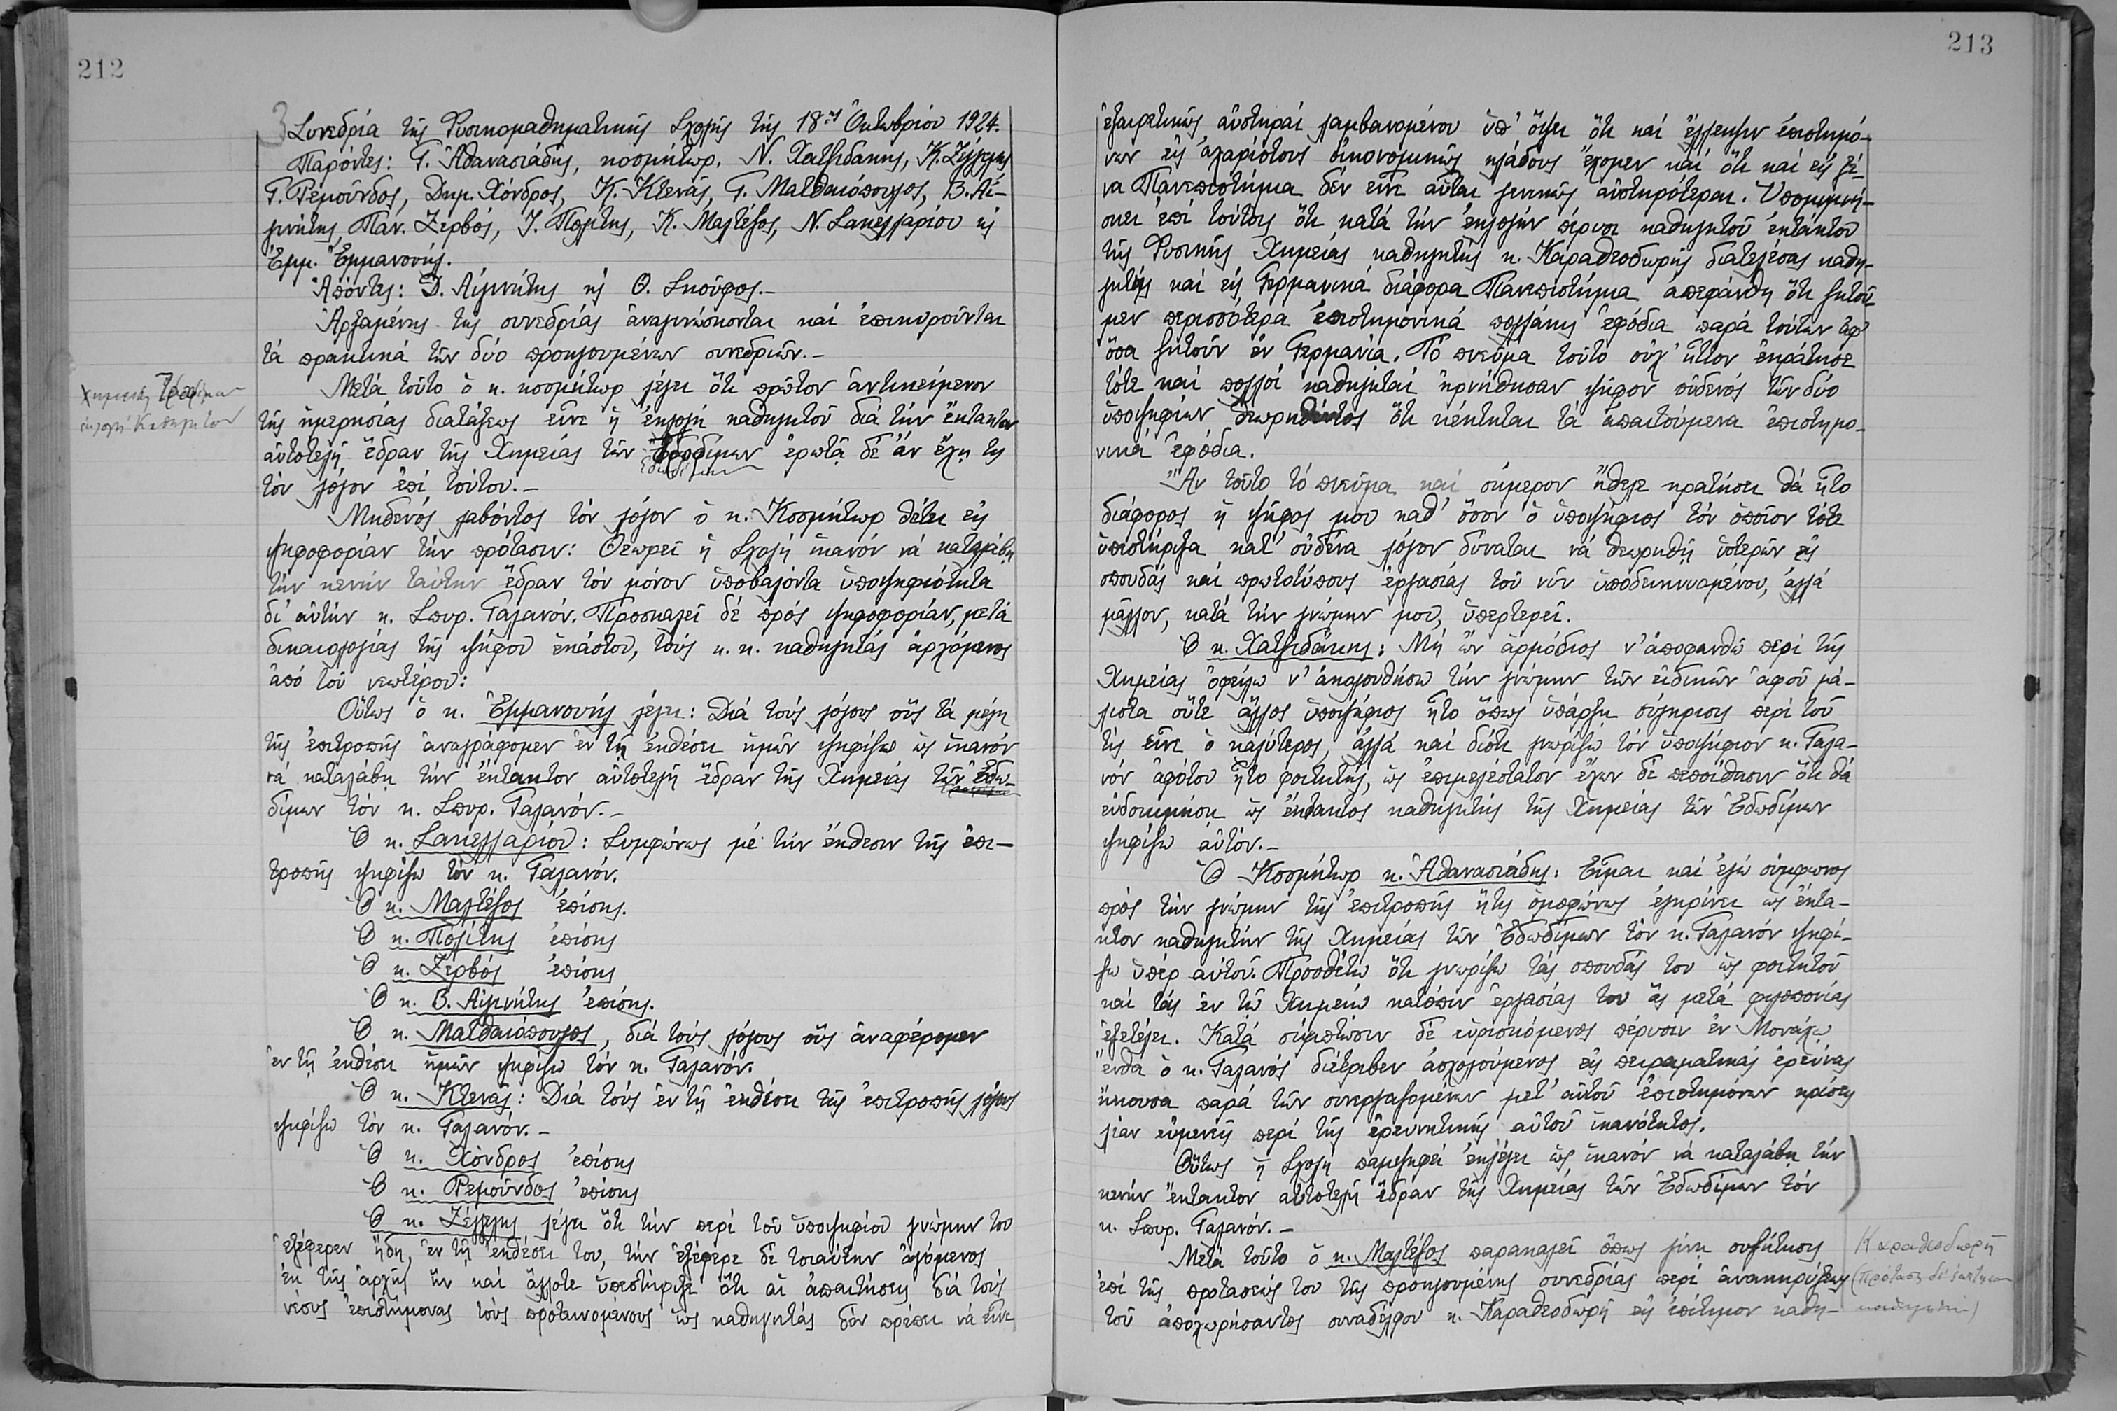 212
3 Συνεδρία τῆς Φυσικομαθηματικῆς Σχολῆς τῆς 18ης Ὀκτωβρίου 1924.
Παρόντες: Γ. Ἀθανασιάδης, κοσμήτωρ, Ν. Χατζιδάκης, Κ. Ζέγγελης
Γ. Ρεμοῦνδος, Δημ. Χόνδρος, Κ. Κτενᾶς, Γ. Ματθαιόπουλος, Β. Αἰ-
γινήτης, Παν. Ζερβός, Ἰ. Πολίτης, Κ. Μαλτέζος, Ν. Σακελλαρίου κ
Ἐμμ. Ἐμμανουήλ.
Ἀπόντες: Δ. Αἰγινήτης κ Θ. Σκοῦφος.–
Ἀρξαμένης τῆς συνεδρίας ἀναγινώσκονται καί ἐπικυροῦνται
τά πρακτικά τῶν δύο προηγουμένων συνεδριῶν.–
Μετά τοῦτο ὁ κ. κοσμήτωρ λέγει ὅτι πρῶτον ἀντικείμενον
τῆς ἡμερησίας διατάξεως εἶνε ἡ ἐκλογή καθηγητοῦ διά τήν ἔκτακτον
αὐτοτελῆ ἕδραν τῆς Χημείας τῶν Ἐδωδίμων ἐρωτᾷ δέ ἄν ἔχῃ τις
τόν λόγον ἐπί τούτου.–
Χημείας Τροφίμων
ἐκλογή Καθηγητοῦ
Μηδενός λαβόντος τόν λόγον ὁ κ. Κοσμήτωρ θέτει εἰς
ψηφοφορίαν τήν πρότασιν: Θεωρεῖ ἡ Σχολή ἱκανόν νά καταλάβῃ
τήν κενήν ταύτην ἕδραν τόν μόνον ὑποβαλόντα ὑποψηφιότητα
δι' αὐτήν κ. Σπυρ. Γαλανόν. Προσκαλεῖ δέ πρός ψηφοφορίαν, μετά
δικαιολογίας τῆς ψήφου ἑκάστου, τούς κ. κ. καθηγητάς ἀρχόμενος
ἀπό τοῦ νεωτέρου:
Οὕτως ὁ κ. Ἐμμανουήλ λέγει: Διά τούς λόγους οὕς τά μέλη
τῆς ἐπιτροπῆς ἀναγράφομεν ἐν τῇ ἐκθέσει ἡμῶν ψηφίζω ὡς ἱκανόν
νά καταλάβῃ τήν ἔκτακτον αὐτοτελῆ ἕδραν τῆς Χημείας τῶν Ἐδω-
δίμων τόν κ. Σπυρ. Γαλανόν.–
Ὁ κ. Σακελλαρίου: Συμφώνως μέ τήν ἔκθεσιν τῆς ἐπι–
τροπῆς ψηφίζω τόν κ. Γαλανόν.
Ὁ κ. Μαλτέζος ἐπίσης.
Ὁ κ. Πολίτης ἐπίσης
Ὁ κ. Ζερβός ἐπίσης
Ὁ κ. Β. Αἰγινήτης ἐπίσης.
Ὁ κ. Ματθαιόπουλος, διά τούς λόγους οὕς ἀναφέρομεν
ἐν τῇ ἐκθέσει ἡμῶν ψηφίζω τόν κ. Γαλανόν.
Ὁ κ. Κτενᾶς: Διά τούς ἐν τῇ ἐκθέσει τῆς ἐπιτροπῆς λόγους
ψηφίζω τόν κ. Γαλανόν.–
Ὁ κ. Χόνδρος ἐπίσης
Ὁ κ. Ρεμοῦνδος ἐπίσης
Ὁ κ. Ζέγγελης λέγει ὅτι τήν περί τοῦ ὑποψηφίου γνώμην του
ἐξέφερεν ἤδη ἐν τῇ ἐκθέσει του, τήν ἐξέφερε δέ τοιαύτην ἀγόμενος
ἐκ τῆς ἀρχῆς ἥν καί ἄλλοτε ὑπεστήριξε ὅτι αἱ ἀπαιτήσεις διά τούς
νέους ἐπιστήμονας τούς προτεινομένους ὡς καθηγητάς δέν πρέπει νά εἶνε
213
ἐξαιρετικῶς αὐστηραί λαμβανομένου ὑπ' ὄψει ὅτι καί ἔλλειψιν ἐπιστημό-
νων εἰς ἀχαρίστους οἰκονομικῶς κλάδους ἔχομεν καί ὅτι καί εἰς ξέ-
να Πανεπιστήμια δέν εἶνε αὗται γενικῶς αὐστηρότεραι. Ὑπομιμνή-
σκει ἐπί τούτοις ὅτι κατά τήν ἐκλογήν πέρυσι καθηγητοῦ ἐκτάκτου
τῆς Φυσικῆς Χημείας καθηγητής κ. Καραθεοδωρῆς διατελέσας καθη-
γητής καί εἰς Γερμανικά διάφορα Πανεπιστήμια ἀπεφάνθη ὅτι ζητοῦ
μεν περισσότερα ἐπιστημονικά πολλάκις ἐφόδια παρά τούτων ἀφ'
ὅσα ζητοῦν ἐν Γερμανίᾳ. Τό πνεῦμα τοῦτο οὐχ' ἧττον ἐκράτησε
τότε καί πολλοί καθηγηταί ἠρνήθησαν ψῆφον οὐδενός τῶν δύο
ὑποψηφίων θεωρηθέντος ὅτι κέκτηται τά ἀπαιτούμενα ἐπιστημο-
νικά ἐφόδια.
Ἄν τοῦτο τό πνεῦμα καί σήμερον ἤθελε κρατήσει θά ἦτο
διάφορος ἡ ψῆφος μου καθ' ὅσον ὁ ὑποψήφιος τόν ὁποῖον τότε
ὑπεστήριξα κατ' οὐδένα λόγον δύναται νά θεωρηθῇ ὑστερῶν εἰς
σπουδάς καί πρωτοτύπους ἐργασίας τοῦ νῦν ὑποδεικνυομένου, ἀλλά
μᾶλλον, κατά τήν γνώμην μου, ὑπερτερεῖ.
Ὁ κ. Χατζιδάκης: Μή ὤν ἁρμόδιος ν' ἀποφανθῶ περί τῆς
Χημείας ὀφείλω ν' ἀκολουθήσω τήν γνώμην τῶν εἰδικῶν ἀφοῦ μά-
λιστα οὔτε ἄλλος ὑποψήφιος ἦτο ὅπως ὑπάρξῃ σύγκρισις περί τοῦ
τίς εἶνε ὁ καλύτερος, ἀλλά καί διότι γνωρίζω τόν ὑποψήφιον κ. Γαλα-
νόν ἀφότου ἦτο φοιτητής, ὡς ἐπιμελέστατον ἔχων δέ πεποίθησιν ὅτι θά
εὐδοκιμήσῃ ὡς ἔκτακτος καθηγητής τῆς Χημείας τῶν Ἐδωδίμων
ψηφίζω αὐτόν.–
Ὁ Κοσμήτωρ κ. Ἀθανασιάδης: Εἶμαι καί ἐγώ σύμφωνος
πρός τήν γνώμην τῆς ἐπιτροπῆς ἥτις ὁμοφώνως ἐγκρίνει ὡς ἔκτα-
κτον καθηγητήν τῆς Χημείας τῶν Ἐδωδίμων τόν κ. Γαλανόν ψηφί-
ζω ὑπέρ αὐτοῦ. Προσθέτω ὅτι γνωρίζω τάς σπουδάς του ὡς φοιτητοῦ
καί τάς ἐν τῷ Χημείῳ κατόπιν ἐργασίας του ἅς μετά φιλοπονίας
ἐξετέλει. Κατά σύμπτωσιν δέ εὑρισκόμενος πέρυσιν ἐν Μονάχῳ
ἔνθα ὁ κ. Γαλανός διέτριβεν ἀσχολούμενος εἰς πειραματικάς ἐρεύνας
ἤκουσα παρά τῶν συνεργαζομένων μετ' αὐτοῦ ἐπιστημόνων κρίσεις
λίαν εὐμενεῖς περί τῆς ἐρευνητικῆς αὐτοῦ ἱκανότητος.
Οὕτως ἡ Σχολή παμψηφεί ἐκλέγει ὡς ἱκανόν νά καταλάβῃ τήν
κενήν ἔκτακτον αὐτοτελῆ ἕδραν τῆς Χημείας τῶν Ἐδωδίμων τόν
κ. Σπυρ. Γαλανόν.–
Μετά τοῦτο ὁ κ. Μαλτέζος παρακαλεῖ ὅπως γίνῃ συζήτησις
ἐπί τῆς προτάσεώς του τῆς προηγουμένης συνεδρίας περί ἀνακηρύξεως
τοῦ ἀποχωρήσαντος συναδέλφου κ. Καραθεοδωρῆ εἰς ἐπίτιμον καθη-
Καραθεοδωρῆ
(πρότασις δι' ἐπίτιμον
καθηγητήν)